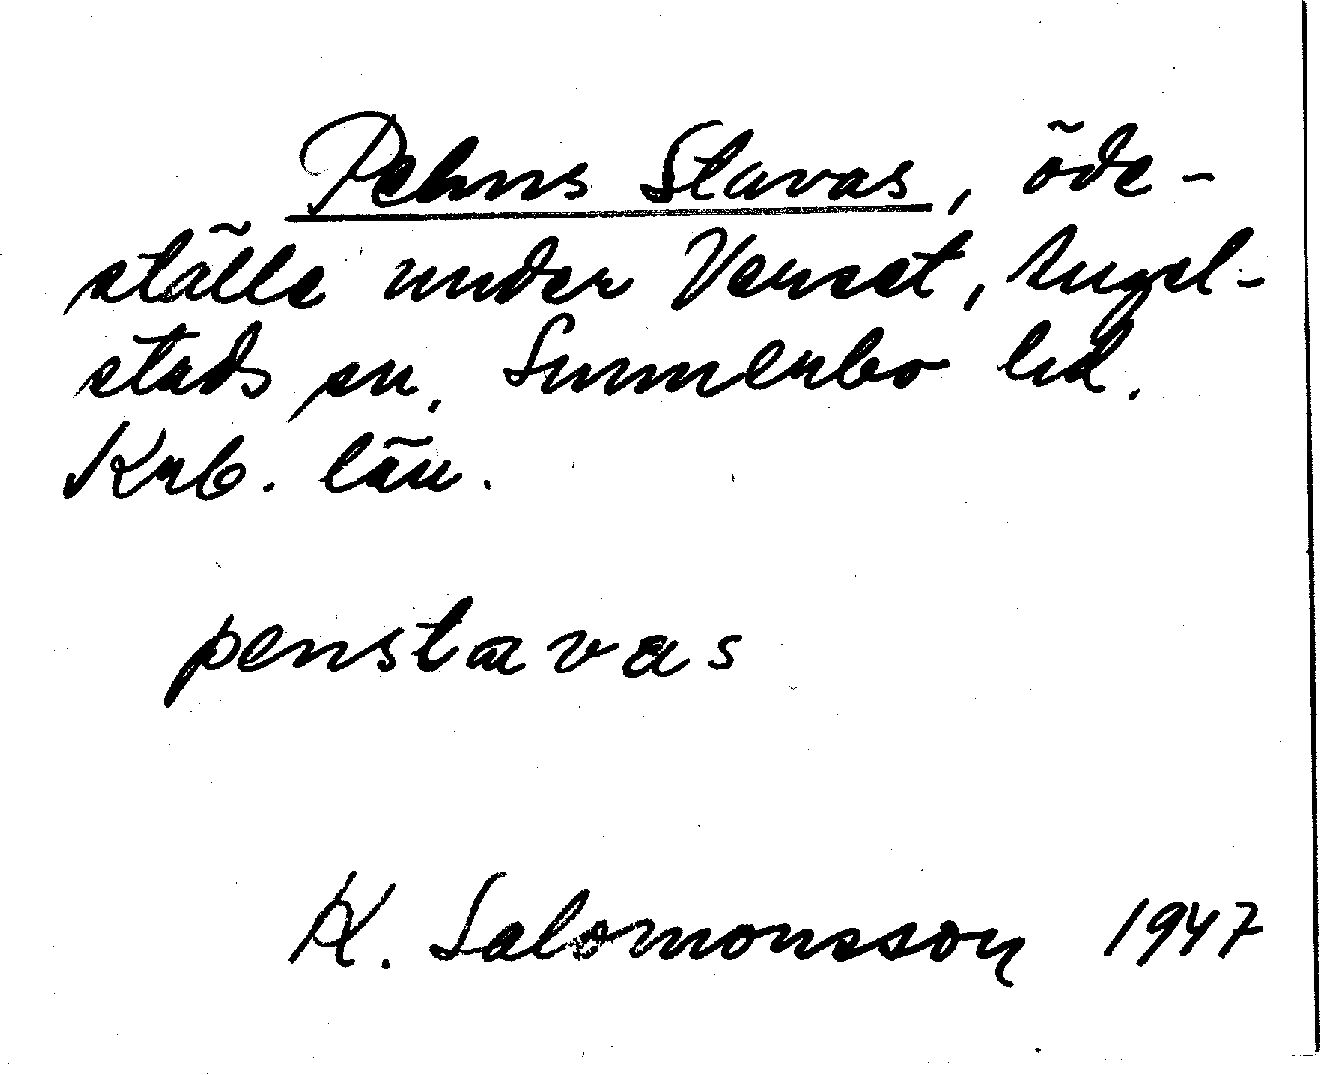 Pehns Stavas, öde-
ställe under Verset, Angel-
stads sn, Sunnerbo hd.
Krb. län.
penstavas
K. Salomonsson 1947